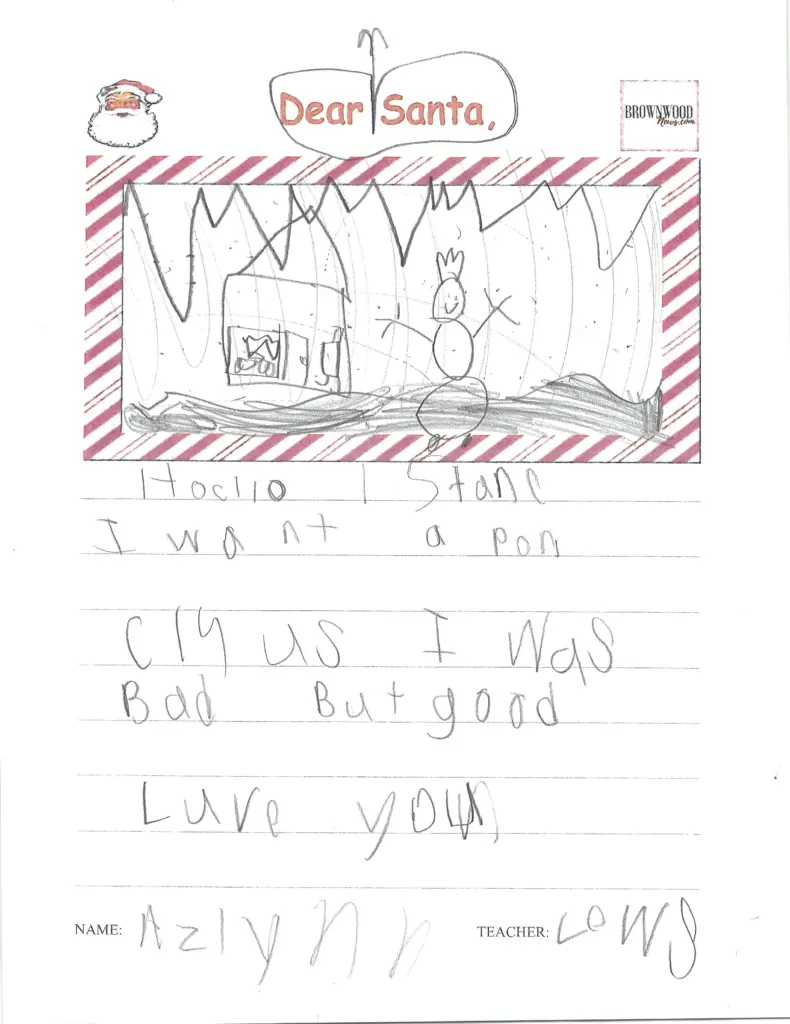 Dear Santa,
BROWNWOOD
News.com
Hocllo Stane
I want a pon
Clyus I was
Bad But good
Luve you
NAME: Azlynn TEACHER: Lows